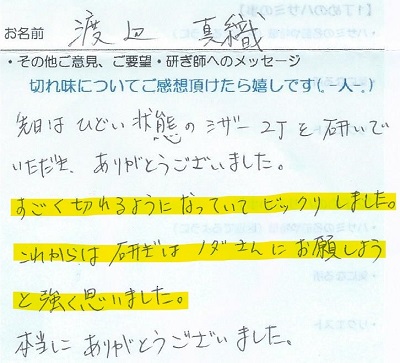 お名前 渡辺 真織
・その他ご意見、ご要望・研ぎ師へのメッセージ
切れ味についてご感想頂けたら嬉しです(.-人-.)
先日は ひどい 状態の シザー 2丁を 研いで
いただき、ありがとうございました。
すごく切れるようになっていて ビックリしました。
これからは 研ぎは ノダさんに お願しよう
と強く思いました。
本当に ありがとうございました。